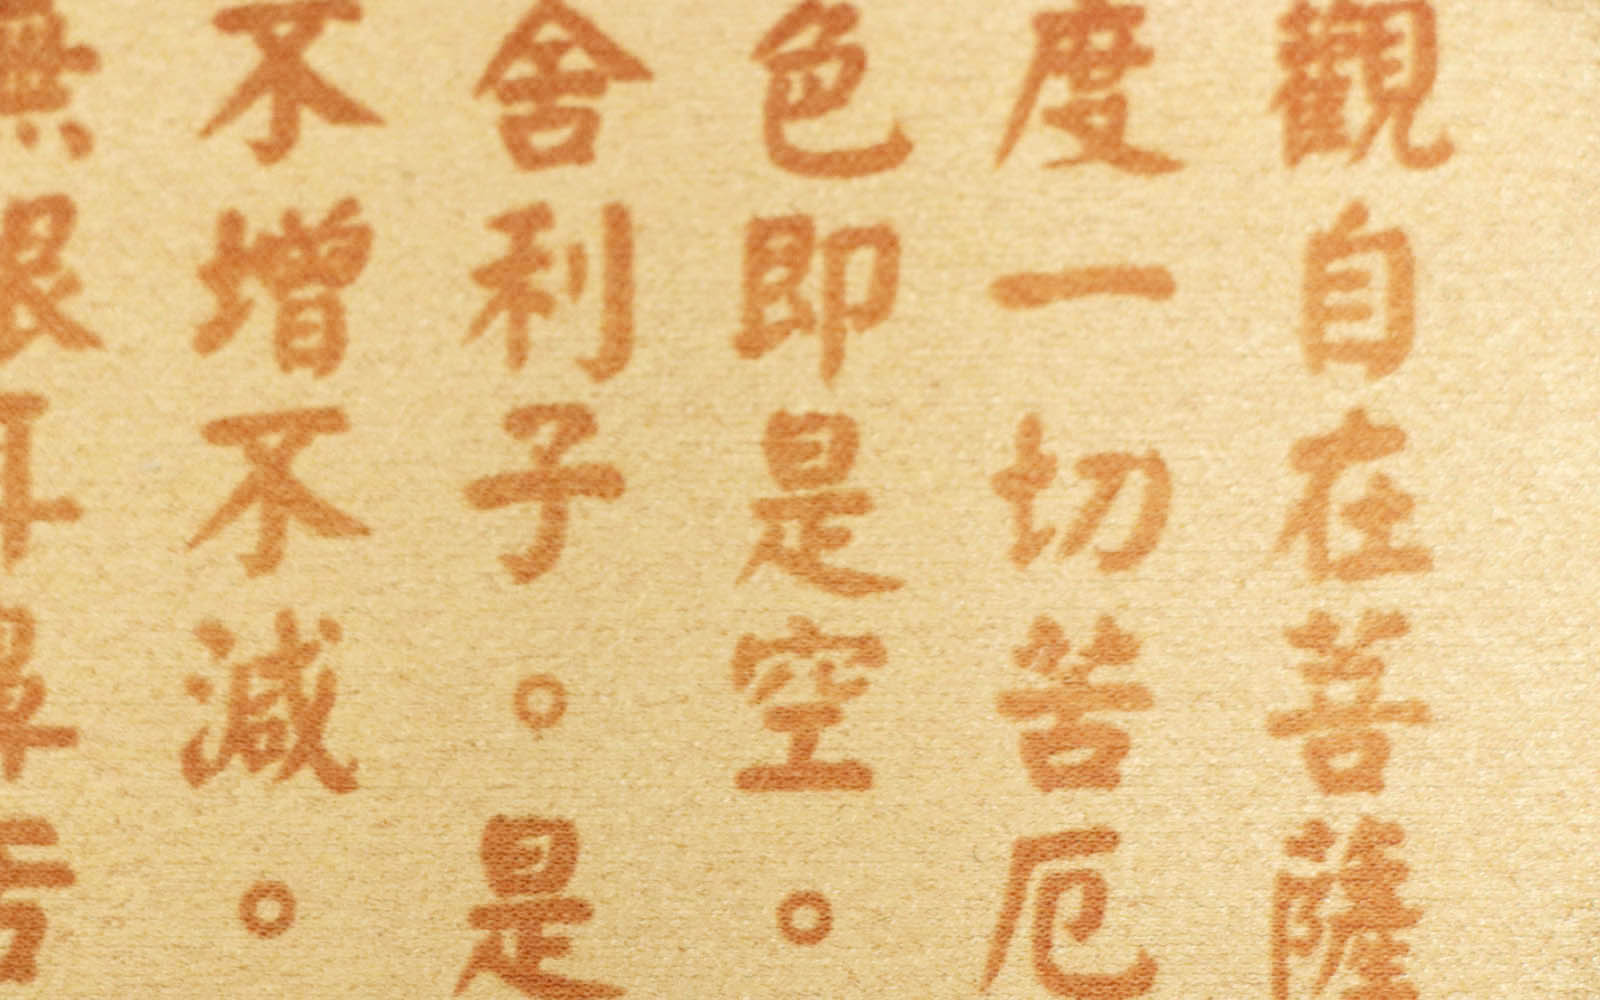 觀自在菩薩
度一切苦厄
色即是空。
舍利子。是
不增不減。
無眼耳鼻舌